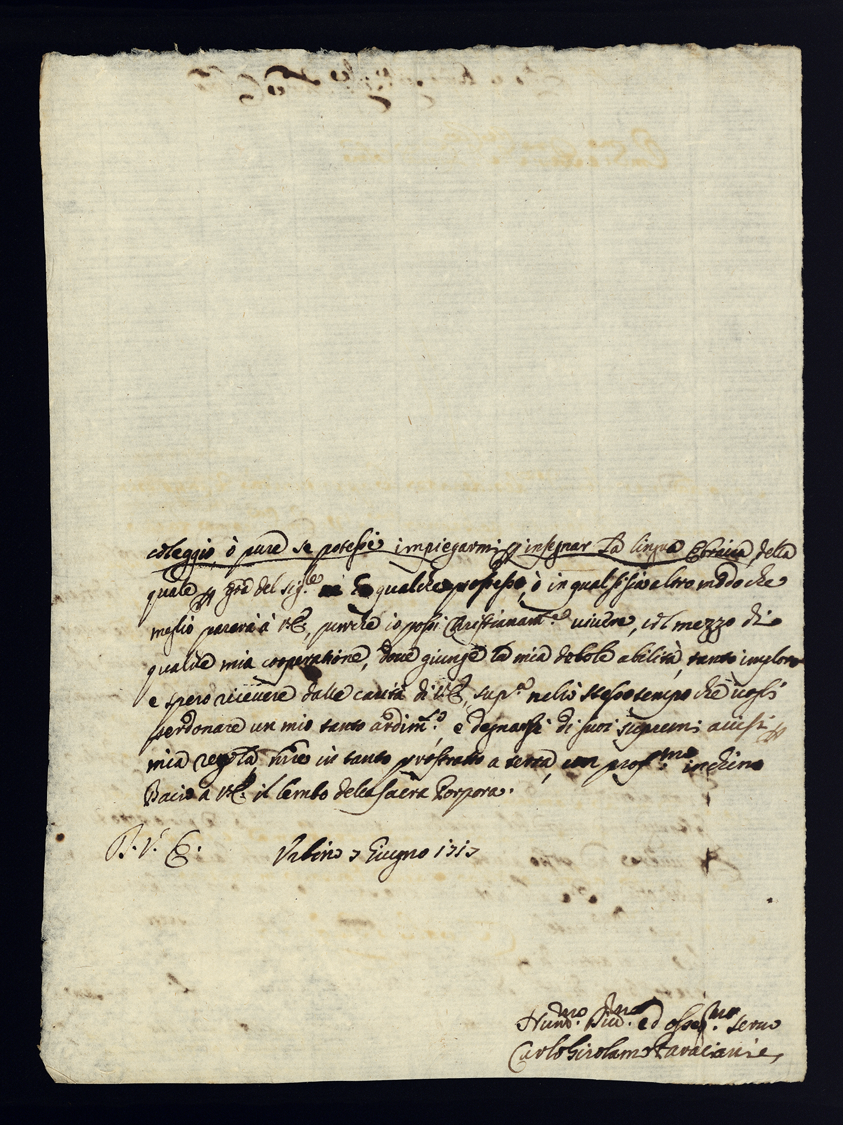 coleggio, ò pure se potessi impiegarmi p insegnar la lingua Ebraica, della
quale p gra del Sig.re ne hò qualche possesso, ò in qualsisia altro modo che
meglio parerà à V.E., purche io possi Christianam.te vivere, col mezzo di
qualche mia cooperatione, dove giunge la mia debole abilità, tanto imploro
e spero ricevere dalla carità di V.E., sup.do nello stesso tempo che vogli
perdonare un mio tanto ardim.to e degnarsi di suoi supremi avisi p
mia regola, mentre in tanto prostrato a terra, con prof.mo inchino
Bacio à V.E. il lembo della Sacra Porpora.
D. V. E. Urbino 7 Giugno 1717
Hum.mo Div.mo ed osseq.mo servo
Carlo Girolamo